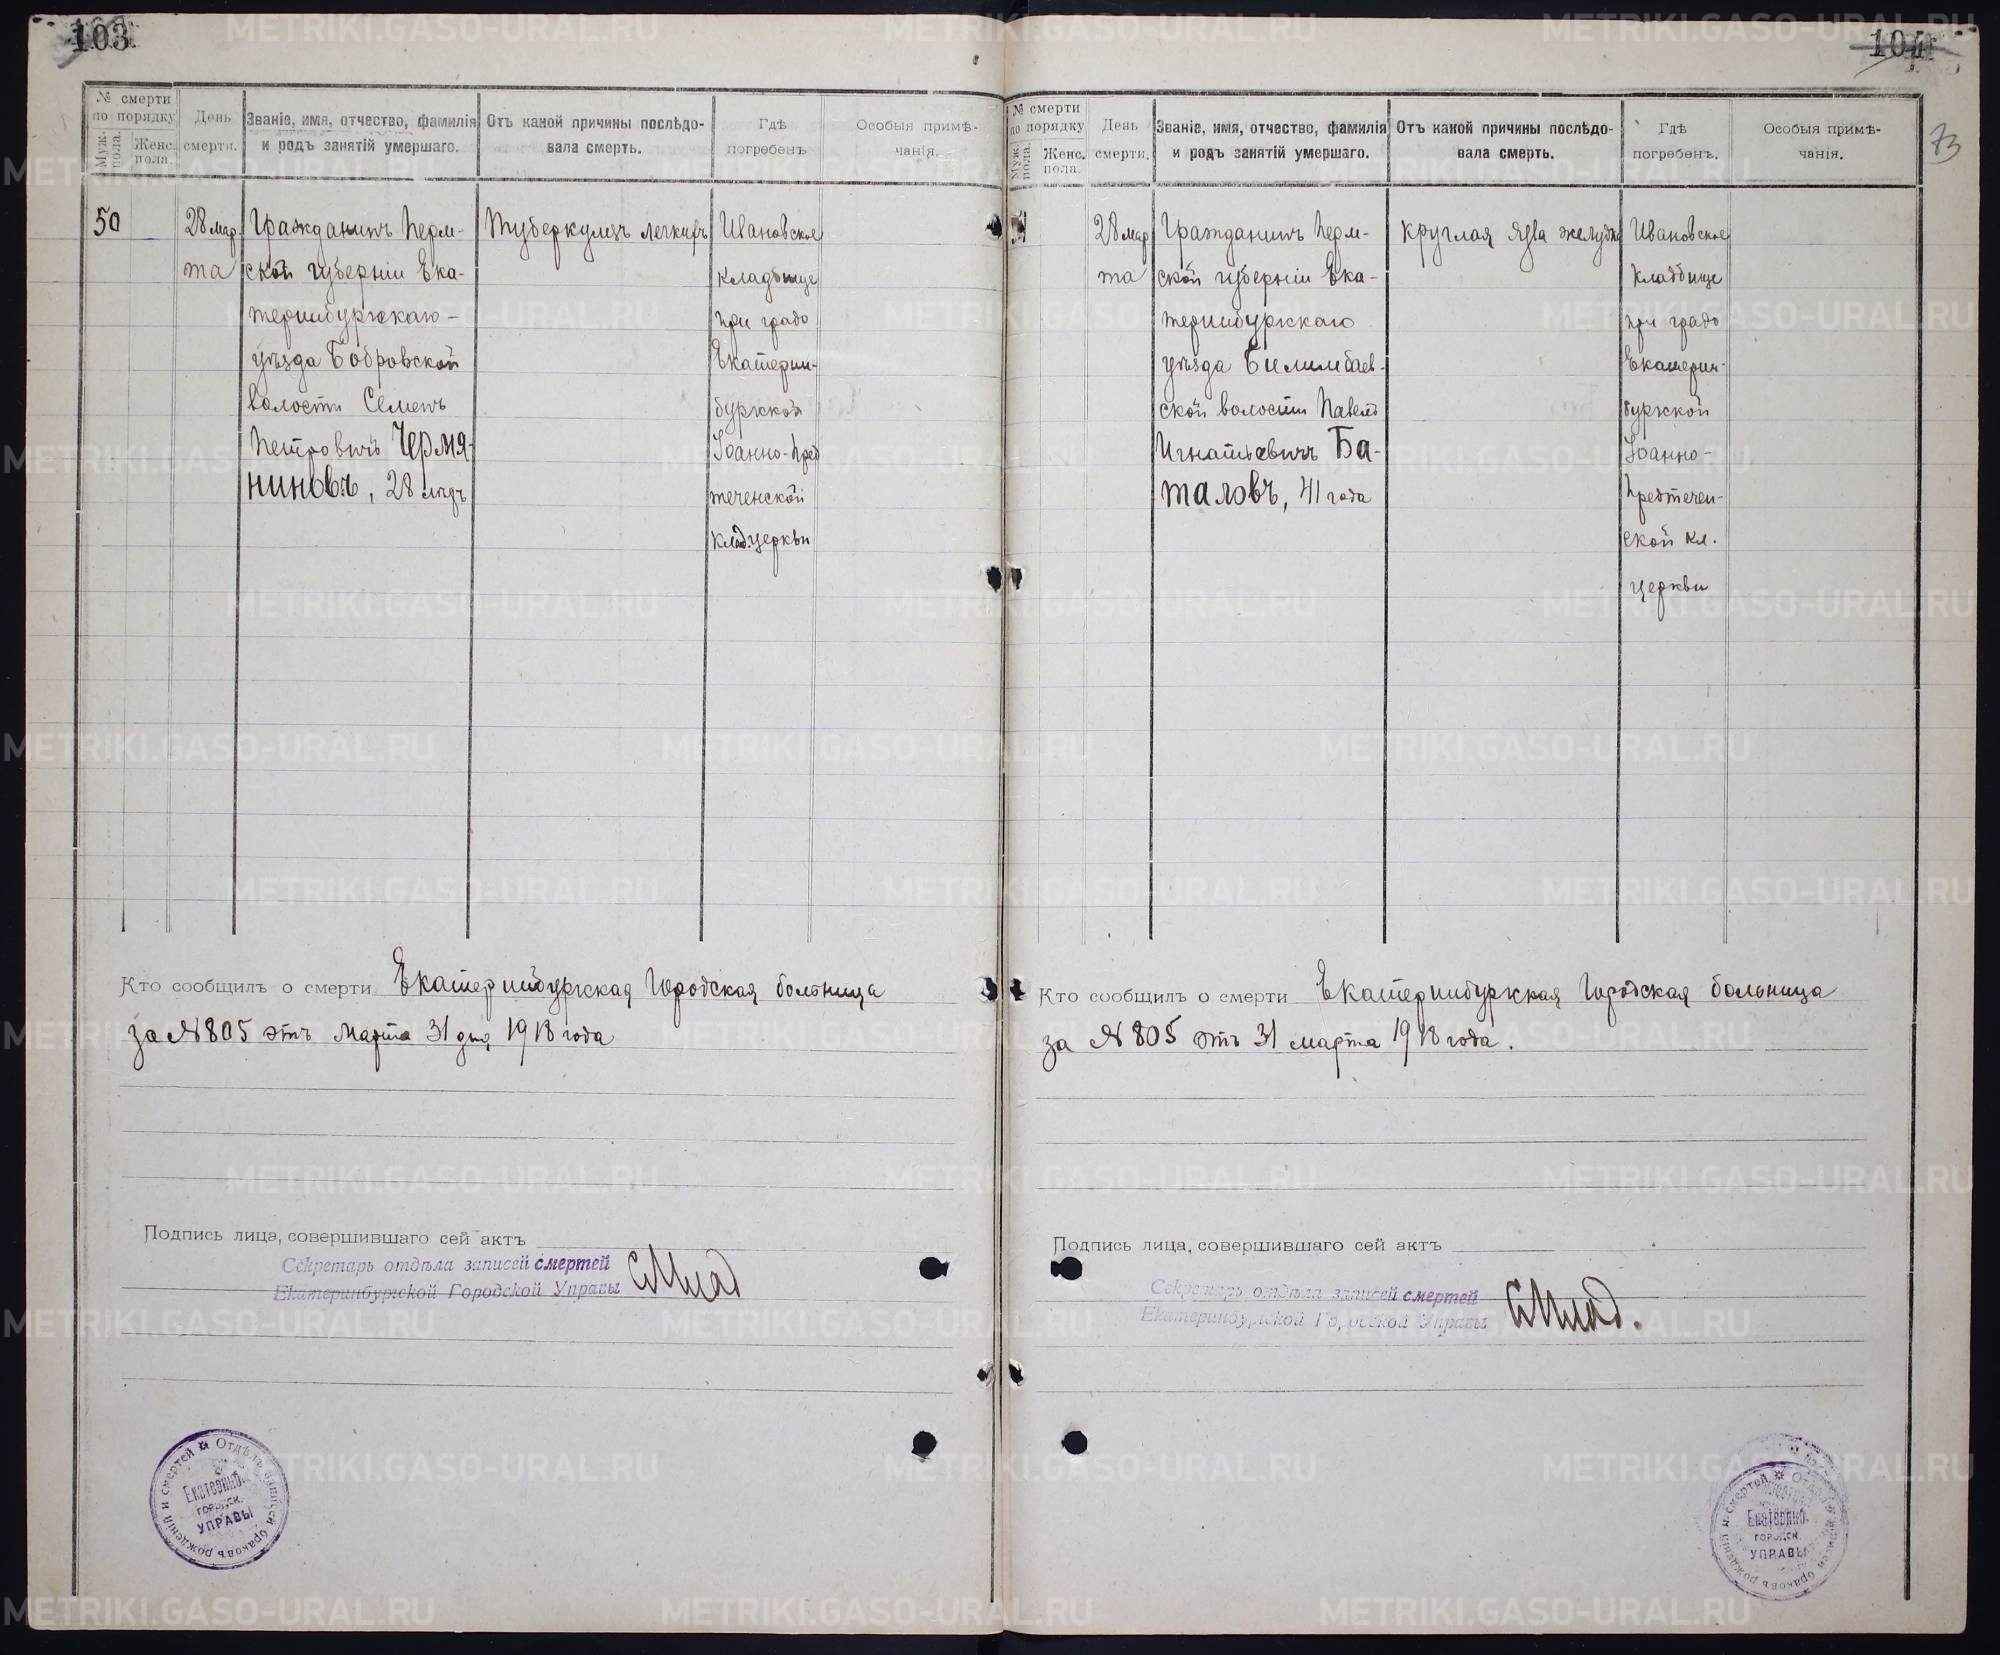 103
№ смерти по порядку
Муж. пола.
Женс. пола.
День смерти.
Званіе, имя, отчество, фамилія и родъ занятій умершаго.
Отъ какой причины послѣдовала смерть.
Гдѣ погребенъ
Особыя примѣчанія.
50
28 мар
та
Гражданинъ Перм-
ской губерніи Ека-
теринбургскаго
уѣзда Бобровской
волости Семенъ
Петровичъ Чермя-
ниновъ, 28 лѣтъ
Туберкулезъ легкихъ
Ивановское
кладбище
при градо
Екатерин-
бургской
Іоанно-Пред
теченской
клад. церкви
Кто сообщилъ о смерти Екатеринбургская Городская больница
за №805 отъ Марта 31 дня 1918 года
Подпись лица, совершившаго сей актъ
Секретарь отдѣла записей смертей
Екатеринбургской Городской Управы
Отдѣлъ записи браковъ рожденій и смертей
Екатеринб.
ГОРОДСК.
УПРАВЫ
104
73
№ смерти по порядку
Муж. пола.
Женс. пола.
День смерти.
Званіе, имя, отчество, фамилія и родъ занятій умершаго.
Отъ какой причины послѣдовала смерть.
Гдѣ погребенъ.
Особыя примѣчанія.
28 мар
та
Гражданинъ Перм-
ской губерніи Ека-
теринбургскаго
уѣзда Билимбаев-
ской волости Павелъ
Игнатьевичъ Ба-
таловъ, 41 года
Круглая язва желудка
Ивановское
кладбище
при градо
Екатерин-
бургской
Іоанно-
Предтечен-
ской кл.
церкви
Кто сообщилъ о смерти Екатеринбургская Городская больница
за №805 отъ 31 марта 1918 года.
Подпись лица, совершившаго сей актъ
Секретарь отдѣла записей смертей
Екатеринбургской Городской Управы
Екатеринб.
ГОРОДСК.
УПРАВЫ
METRIKI.GASO-URAL.RU